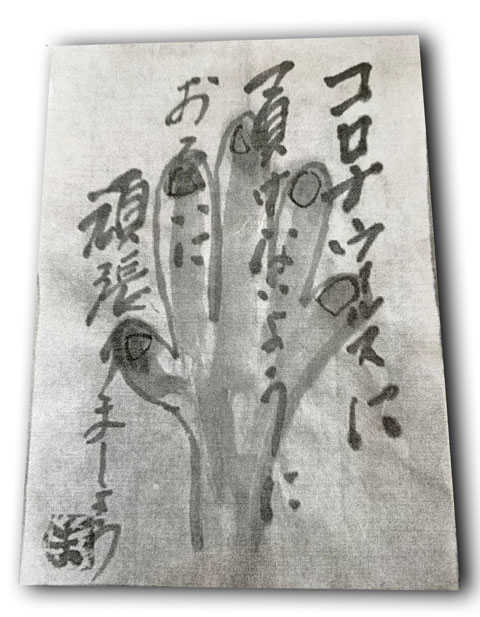 コロナウイルスに
負けないように
お互いに
頑張りましょう